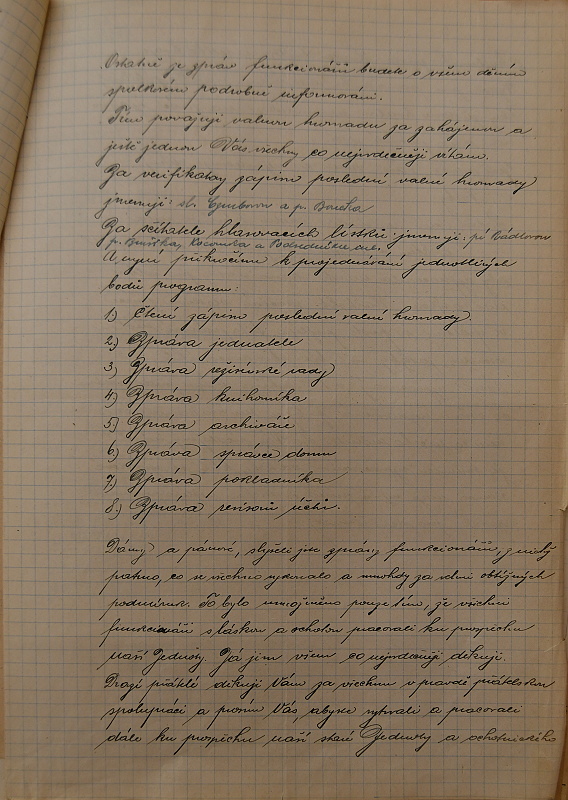 Ostatně ze zpráv funkcionářů budete o všem dění
spolkovém podrobně informováni.
Tím považuji valnou hromadu za zahájenou a
ještě jednou Vás všechny co nejsrdečněji vítám.
Za verifikatory zápisu poslední valné hromady
jmenuji: sl. a p. Boučka
Za sčitatele hlasovacích lístků jmenuji: pí Bádlerovu
p. a
A nyní přikročíme k projednávání jednotlivých
bodů programu:
1) Čtení zápisu poslední valné hromady.
2.) Zpráva jednatele
3.) Zpráva režisérské rady
4) Zpráva knihovníka
5.) Zpráva archiváře
6.) Zpráva správce domu
7.) Zpráva pokladníka
8.) Zpráva revisorů účtů.
Dámy a pánové, slyšeli jste zprávy funkcionářů, z nichž
patrno, co se všechno vykonalo a mnohdy za velmi obtížných
podmínek. To bylo umožněno pouze tím, že všichni
funkcionáři s láskou a ochotou pracovali ku prospěchu
naší Jednoty. Já jim všem co nejsrdečněji děkuji.
Drazí přátelé děkuji Vám za všechnu v pravdě přátelskou
spolupráci a prosím Vás, abyste vytrvali a pracovali
dále ku prospěchu naší staré Jednoty a ochotnického